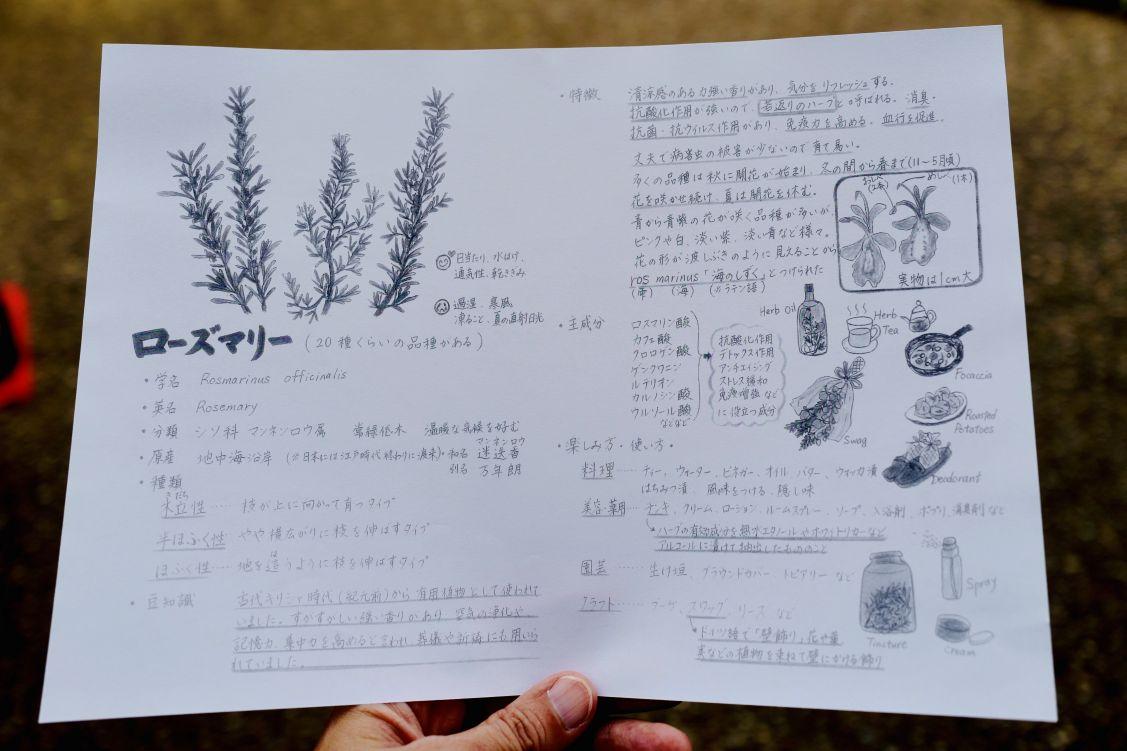 日当たり、水はけ、
通気性、乾ききみ
過湿、寒風
凍ること、夏の直射日光
ローズマリー (20種くらいの品種がある)
・学名 Rosmarinus officinalis
・英名 Rosemary
・分類 シソ科 マンネンロウ属 常緑低木 温暖な気候を好む
・原産 地中海沿岸 (※日本には江戸時代終わりに渡来)・和名 迷迭香
マンネンロウ
別名 万年朗
・種類
きだち
木立性…… 枝が上に向かって育つタイプ
半ほふく性 やや横広がりに枝を伸ばすタイプ
ほふく性…… 地を這うように枝を伸ばすタイプ
は
・豆知識 古代ギリシャ時代(紀元前)から有用植物として使われて
いました。すがすがしい強い香りがあり、空気の浄化や
記憶力、集中力を高めると言われ、葬儀や祈祷にも用いら
れていました。
・特徴 清涼感のある力強い香りがあり、気分をリフレッシュする。
抗酸化作用が強いので、若返りのハーブと呼ばれる。消臭・
抗菌・抗ウイルス作用があり、免疫力を高める。血行を促進。
丈夫で病害虫の被害が少ないので育て易い。
多くの品種は秋に開花が始まり、冬の間から春まで(11〜5月頃)
花を咲かせ続け、夏は開花を休む。
青から青紫の花が咲く品種が多いが、
ピンクや白、淡い紫、淡い青など様々。
花の形が波しぶきのように見えることから
ros marinus「海のしずく」とつけられた
(雫) (海) (※ラテン語)
おしべ
(2本)
めしべ
(1本)
実物は1cm大
・主成分 ロスマリン酸
カフェ酸
クロロゲン酸
ゲンクワニン
ルテリオン
カルノシン酸
ウルソール酸
などなど
抗酸化作用
デトックス作用
アンチエイジング
ストレス緩和
免疫増強など
に役立つ成分
Herb Oil
Herb
Tea
Focaccia
Roasted
Potatoes
Swag
Deodorant
・楽しみ方・使い方・
料理…… ティー、ウォーター、ビネガー、オイル、バター、ウォッカ漬
はちみつ漬、風味をつける、隠し味
美容・薬用…… チンキ、クリーム、ローション、ルームスプレー、ソープ、入浴剤、ポプリ、消臭剤など
ハーブの有効成分を無水エタノールやホワイトリカーなど
アルコールに漬けて抽出したもののこと
園芸…… 生け垣、グラウンドカバー、トピアリーなど
クラフト…… ブーケ、スワッグ、リースなど
ドイツ語で「壁飾り」花や葉
実などの植物を束ねて壁にかける飾り
Tincture
Spray
Cream